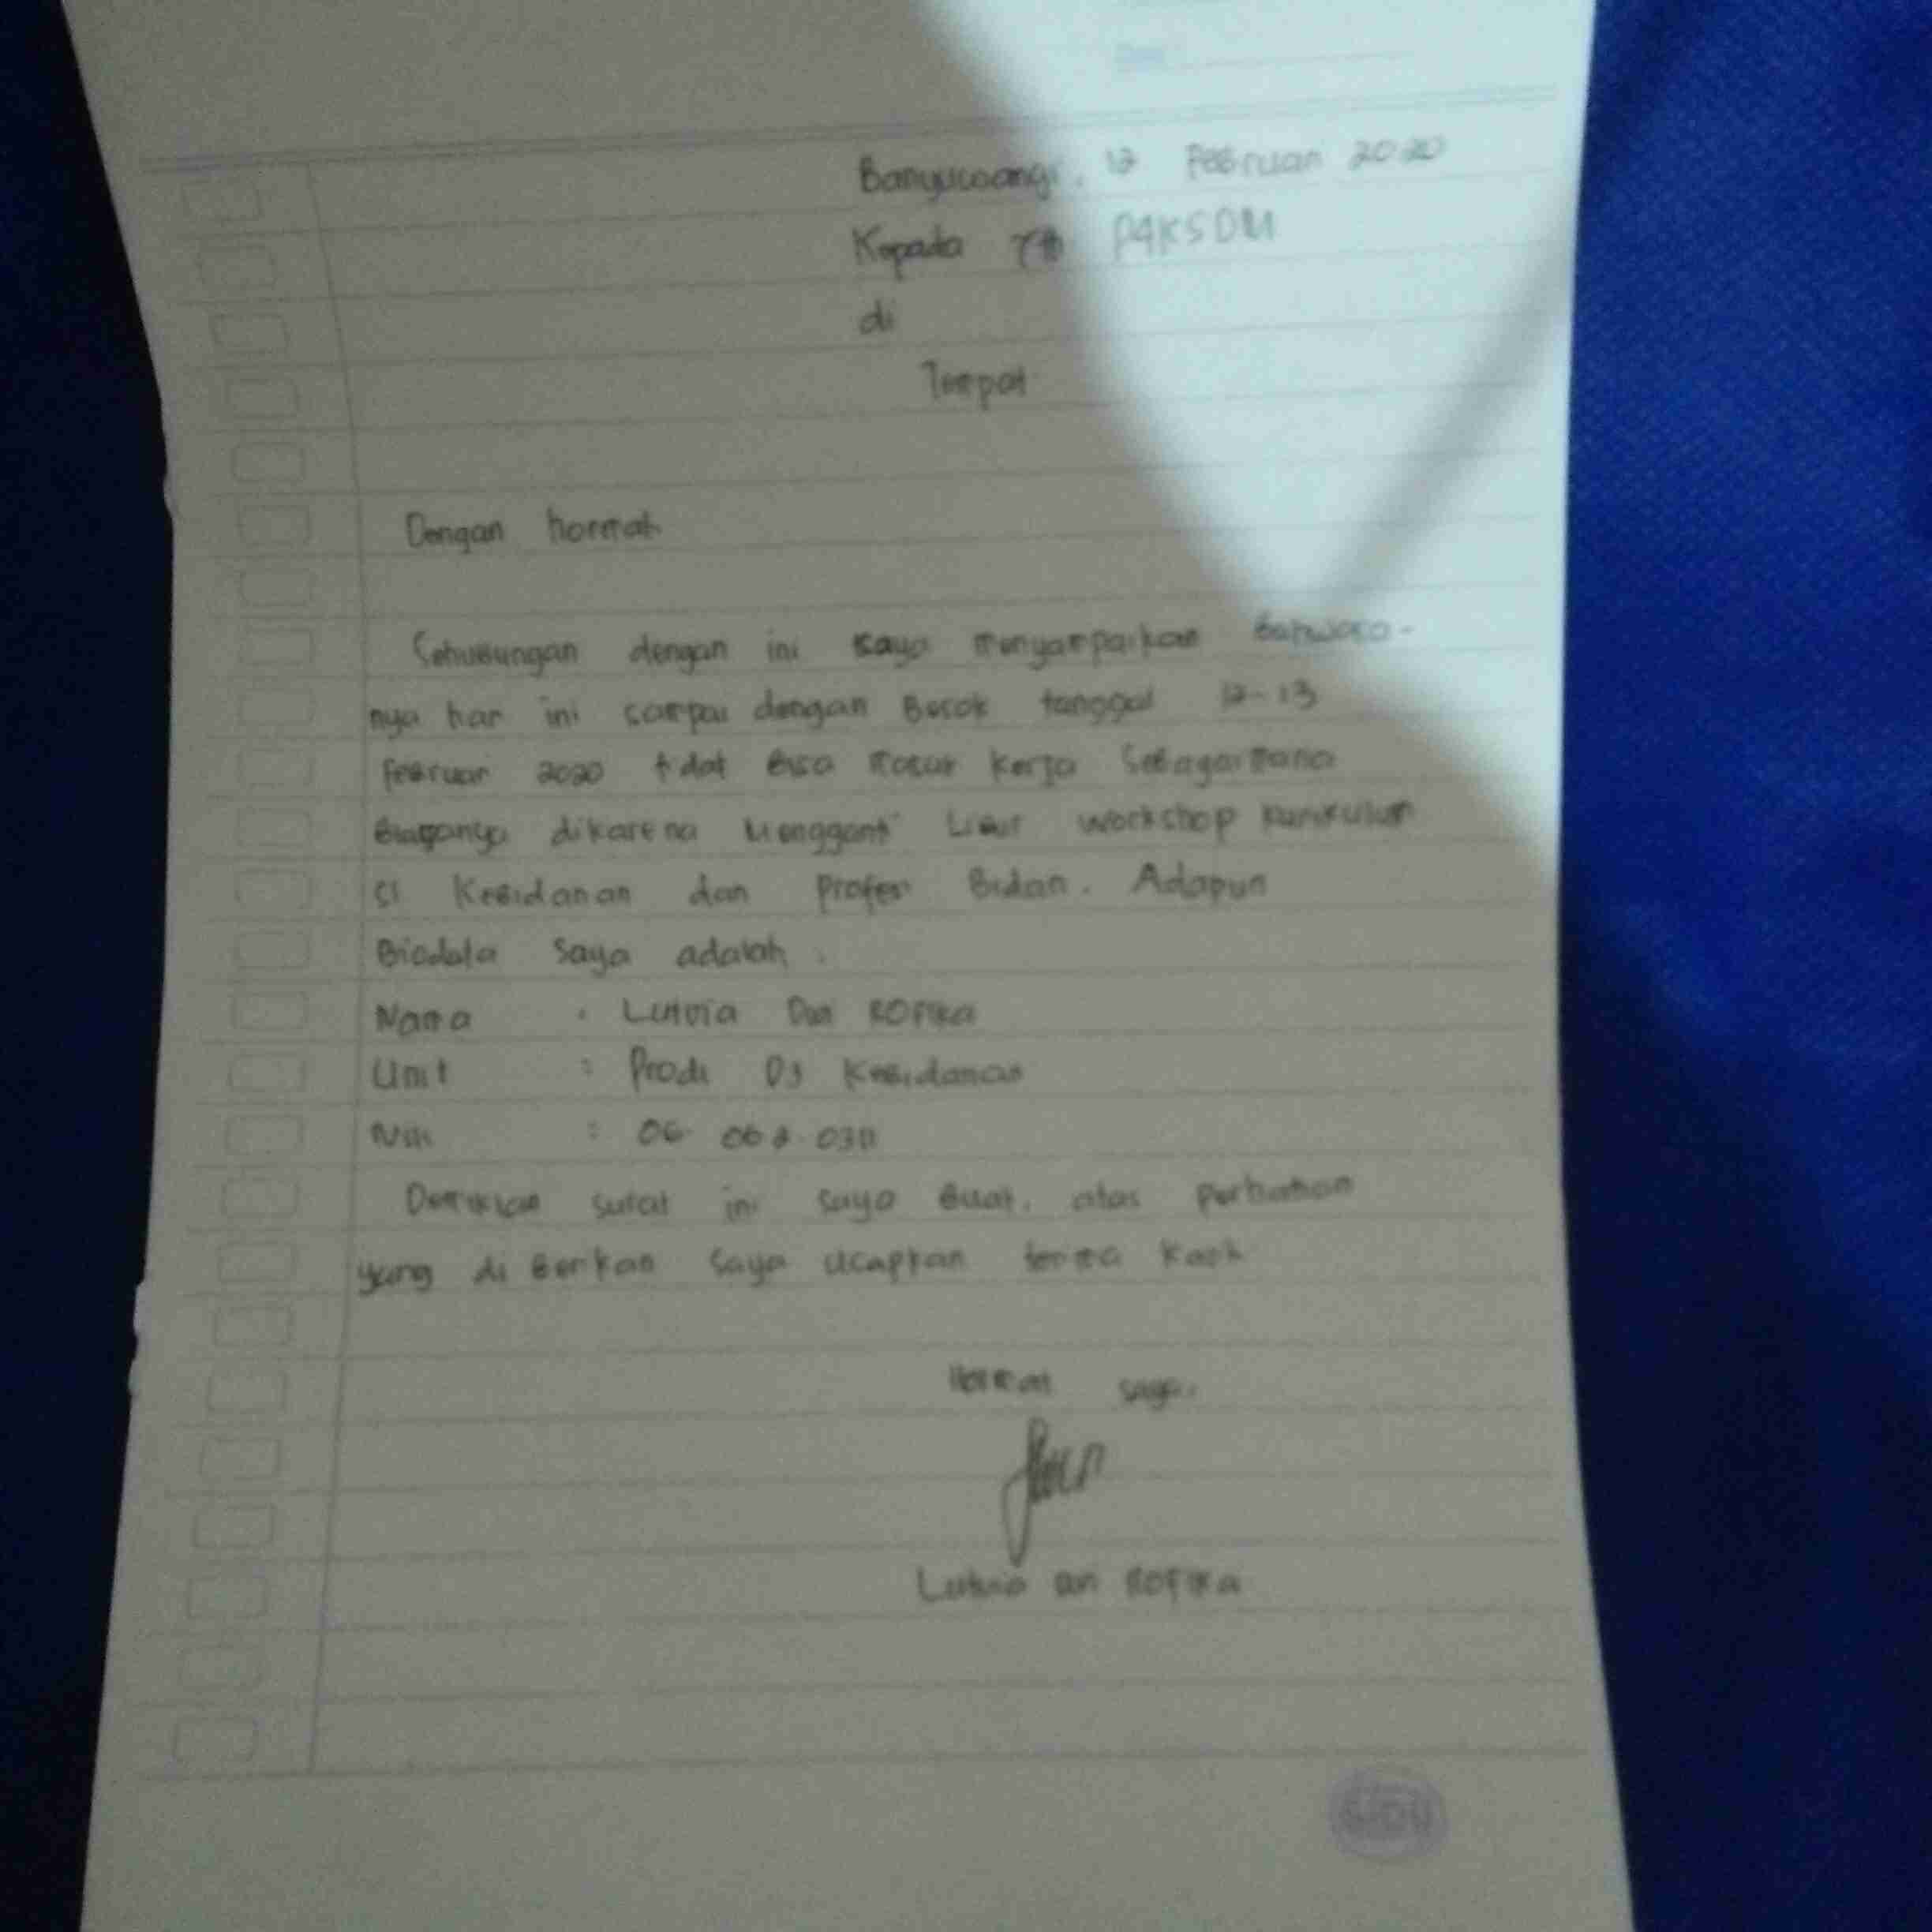 Banyuwangi, 12 Februari 2020
Kepada Yth P4KSDM
di
Tempat
Dengan hormat
Sehubungan dengan ini saya menyampaikan bahwasa-
nya hari ini sampai dengan Besok tanggal 12-13
februari 2020 tidak bisa masuk kerja Sebagaimana
dikarena Mengganti Libur workshop kurikulum
S1 Kebidanan dan Profesi Bidan. Adapun
Biodata Saya adalah :
Nama : Lutvia Dwi ROFIKA
Unit : Prodi D3 Kebidanan
: 06.062.0311
Demikian surat ini saya Buat, atas perhatian
yang di Berikan Saya Ucapkan terima Kasih
Hormat saya,
Lutvia Dwi ROFIKA
SIDU